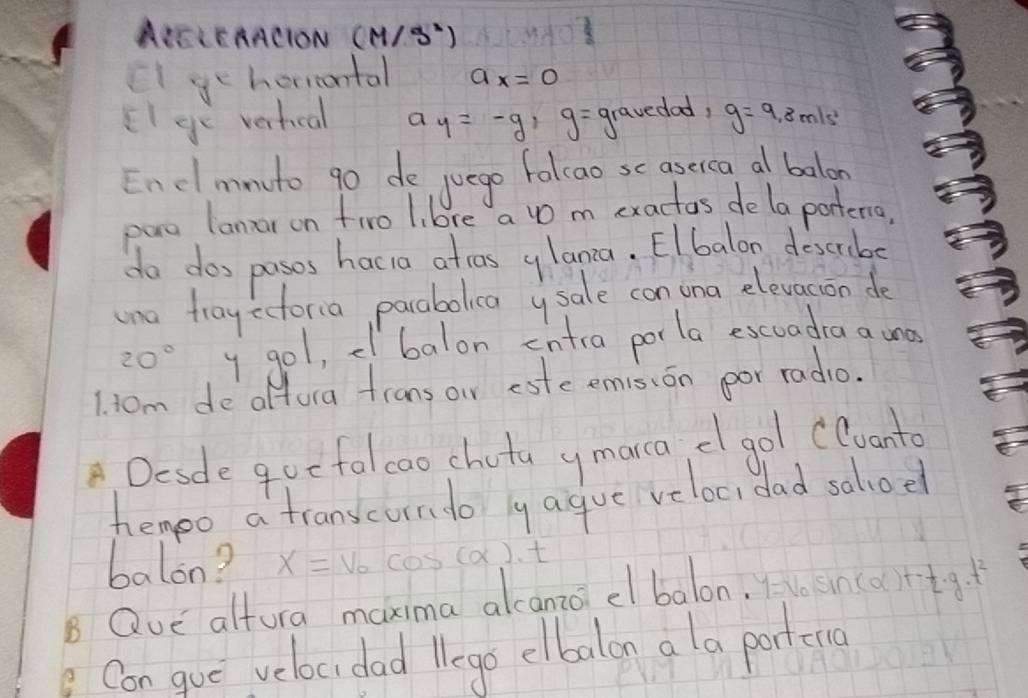 ACELERACION (M/S²)
El eje horizontal ax = 0
El eje vertical ay = -g, g = gravedad, g = 9,8 m/s²
En el minuto 90 de juego Falcao se aserca al balon
para lanzar un tiro libre a 40 m exactos de la porteria,
da dos pasos hacia atras y lanza. El balon describe
una trayectoria parabolica y sale con una elevacion de
20° y gol, el balon entra por la escuadra a unos
1.70m de altura este emisión por radio.
A Desde que falcao chuta y marca el gol ¿Cuanto
tiempo a transcurrido y a que velocidad salio el
balón? x = Vo cos (α).t
B Qué altura maxima alcanzó el balon. y=Vo sin(α)t-½.g.t²
C Con que velocidad llegó el balon a la porteria